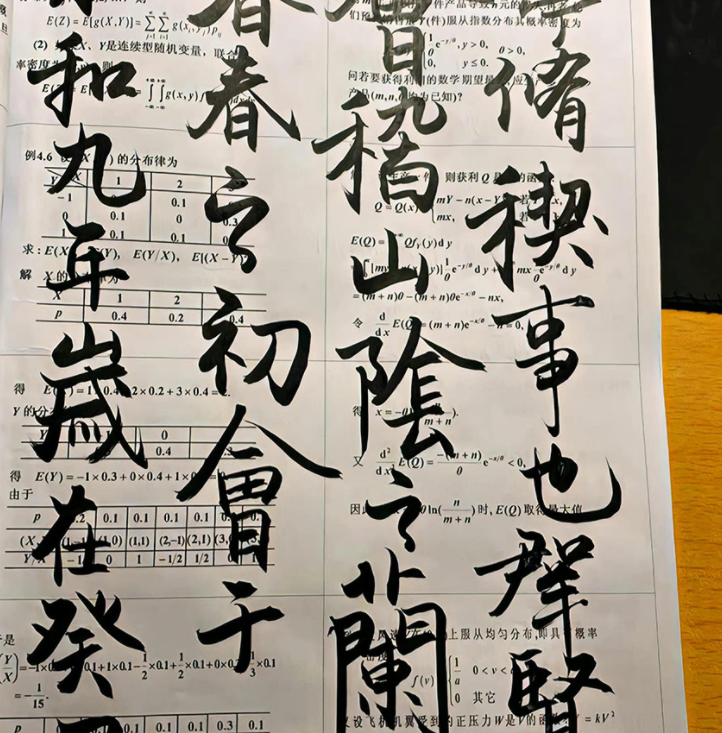 和九年歲在癸
春之初會于
稽山陰之蘭
脩禊事也群賢
E(Z) = E[g(X,Y)] = ∑∑ g(x_i, y_j) p_ij
(2) X、Y是连续型随机变量，联合
率密度为
例4.6
的分布律为
1 2
-1 0.1
0 0.1 0.3
1 0.1 0.1
求：E(X Y), E(Y/X), E[(X-Y
解 X的
X 1 2
P 0.4 0.2 0.4
得 E = 1 0.4 2×0.2+3×0.4=2.
Y的分
Y 0
0.4 .3
得 E(Y) = -1×0.3+0×0.4+1×0 = 0
由于
P .2 0.1 0.1 0.1 0.1
(X, (1,-1) (1,0) (1,1) (2,-1) (2,1) (3,
Y/ -1 0 1 -1/2 1/2
×0.1+1×0.1-1/2×0.1+1/2×0.1+0×0. 1/3×0.1
= -1/15.
P 0.1 0.1 0.1 0.3 0.1
件产品导致n元的损失
(件)服从指数分布其概率密度为
1/θ e^{-y/θ}, y>0, θ>0,
0, y≤0.
问若要获得利润的数学期望最
产品(m,n, 均为已知)?
件 则获利 Q 是 的函
Q = Q(x) mY - n(x-Y 若 x,
mx, 若
E(Q) = Qf_Y(y)dy
[my y)] 1/θ e^{-y/θ} dy + mx 1/θ e^{-y/θ} dy
= (m+n)θ - (m+n)θe^{-x/θ} - nx,
令 d/dx E(Q = (m+n)e^{-x/θ} - n = 0,
得 x = -θ m+n ).
又 d²/dx² E(Q) = -(m+n)/θ e^{-x/θ} < 0,
因 θ ln( n/(m+n) ) 时, E(Q) 取得最大值
上服从均匀分布,即具 概率
f(v) 1/a 0<v<
0 其它
又设飞机机翼受到的正压力W是V的函 = kV²